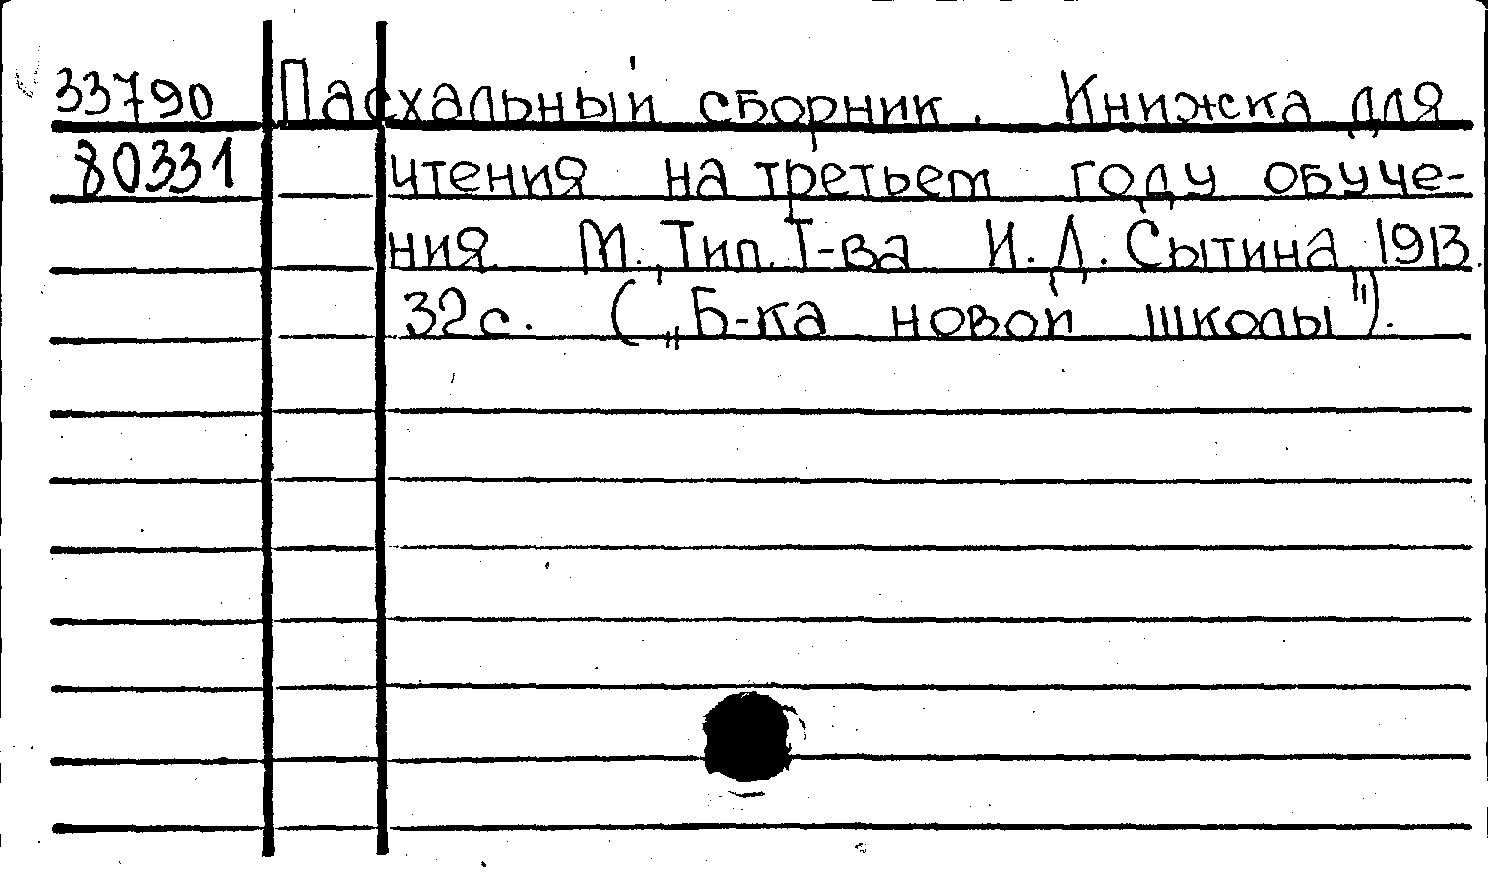 33790 Пасхальный сборник. Книжка для
80331 чтения на третьем году обуче-
ния М., Тип. Т-ва И. Д. Сытина, 1913.
32 с. („Б-ка новой школы").